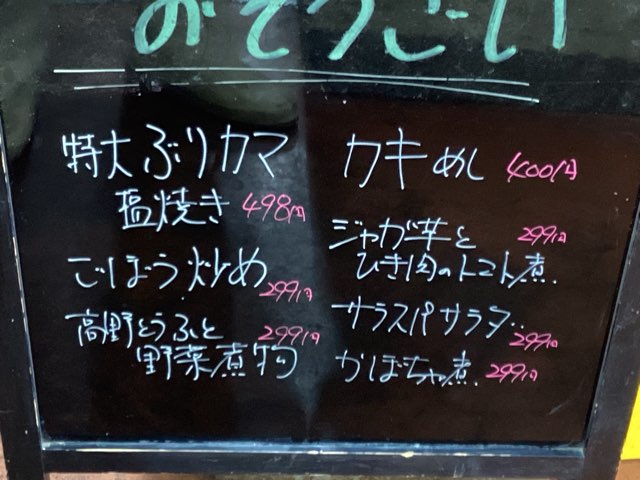 おそうごーい
特大ぶりカマ
塩焼き 498円
ごぼう炒め
299円
高野とうふと 299円
野菜煮物
カキめし 400円
ジャガ芋と 299円
ひき肉のトマト煮
サラスパサラダ 299円
かぼちゃ煮 299円